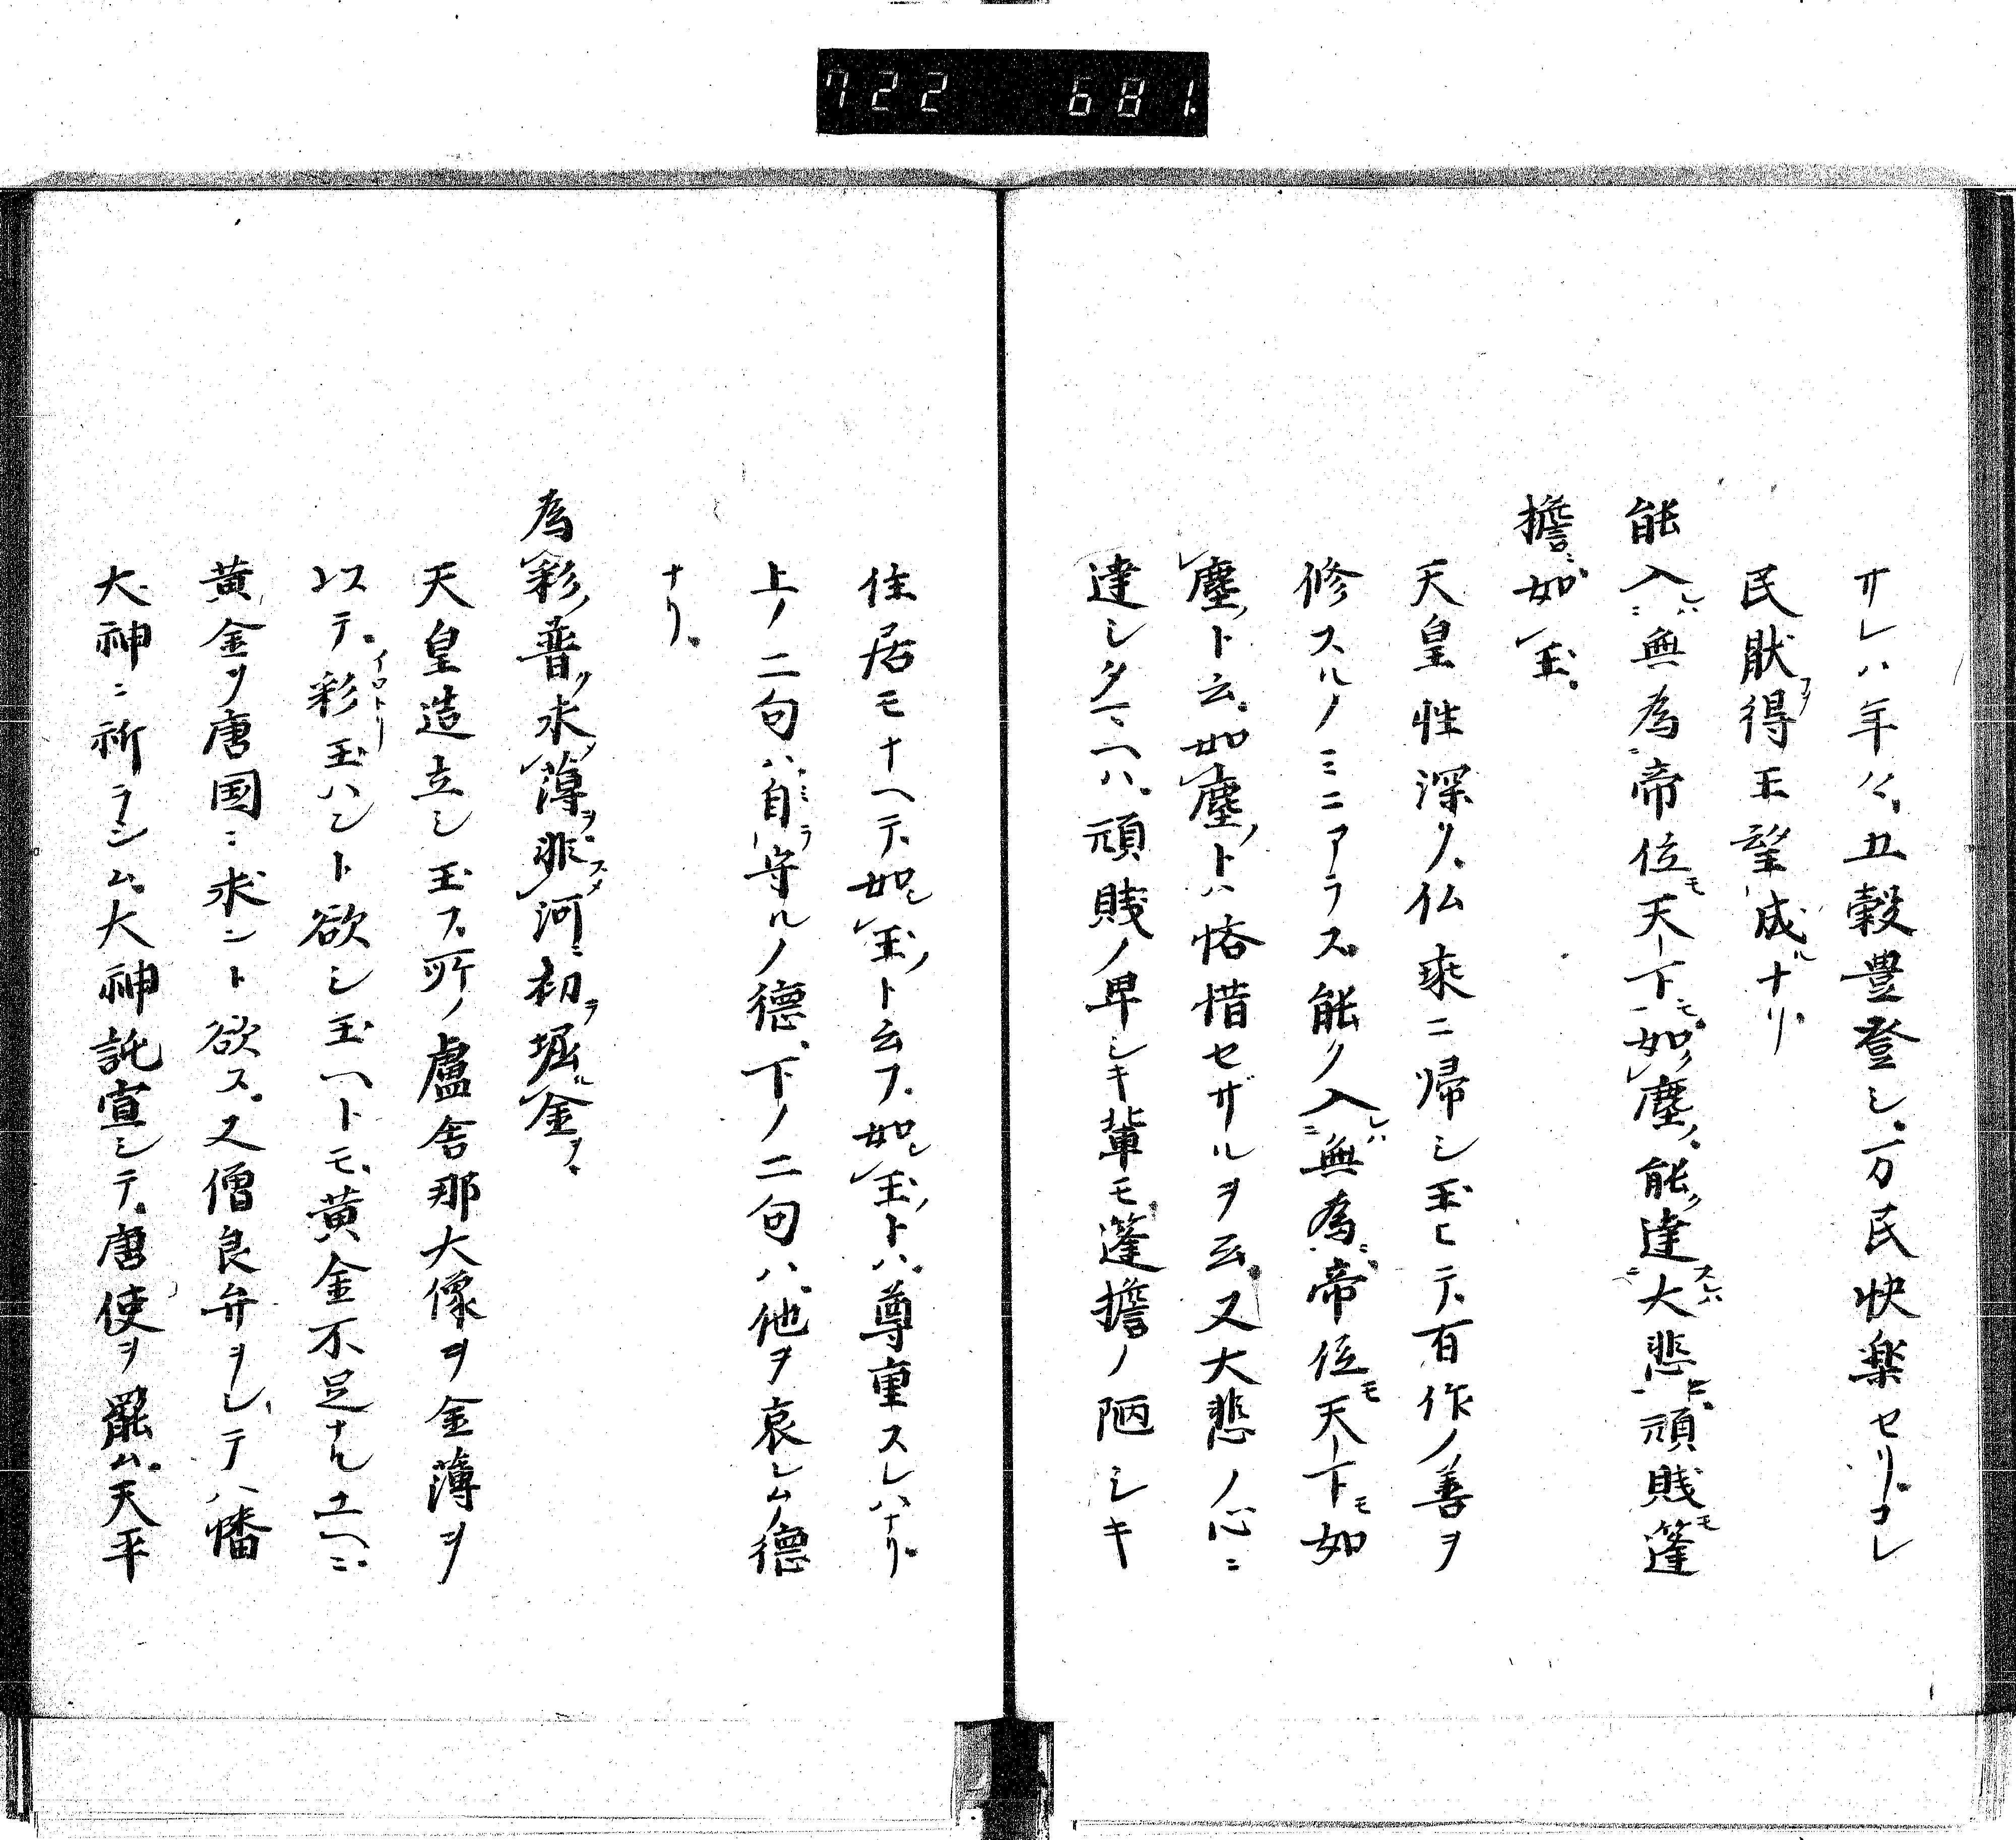 722 681.
サレハ年々丑穀豊登シ。万民快楽セリ。コレ
民猒得王望成ナリ。
能入無為帝位天下如塵。能達大悲頑賎蓬
擔如玉。
天皇性深ク。仏乘ニ帰シ玉ヒテ。有作ノ善ヲ
修スルノミニアラズ。能ク入無為。帝位天下如
塵ト云。如塵トハ悋惜セザルヲ云。又大悲ノ心ニ
達シタマヘハ。頑賎ノ卑シキ輩モ。蓬擔ノ陋シキ
住居モナヘテ。如玉ト云フ。如玉トハ。尊重スレハナリ。
上ノ二句ハ。自守ルノ徳。下ノ二句ハ。他ヲ哀レムノ徳
ナリ。
為彩普求薄。非河初堀金。
天皇造立シ玉フ。所ノ盧舎那大像ヲ金薄ヲ
以テ。彩玉ハント欲シ玉ヘトモ。黄金不足ナルユヘニ。
黄金ヲ唐国ニ求ント欲ス。又僧良弁ヲシテ八幡
大神ニ祈ラシム。大神託宣シテ。唐使ヲ罷ム。天平